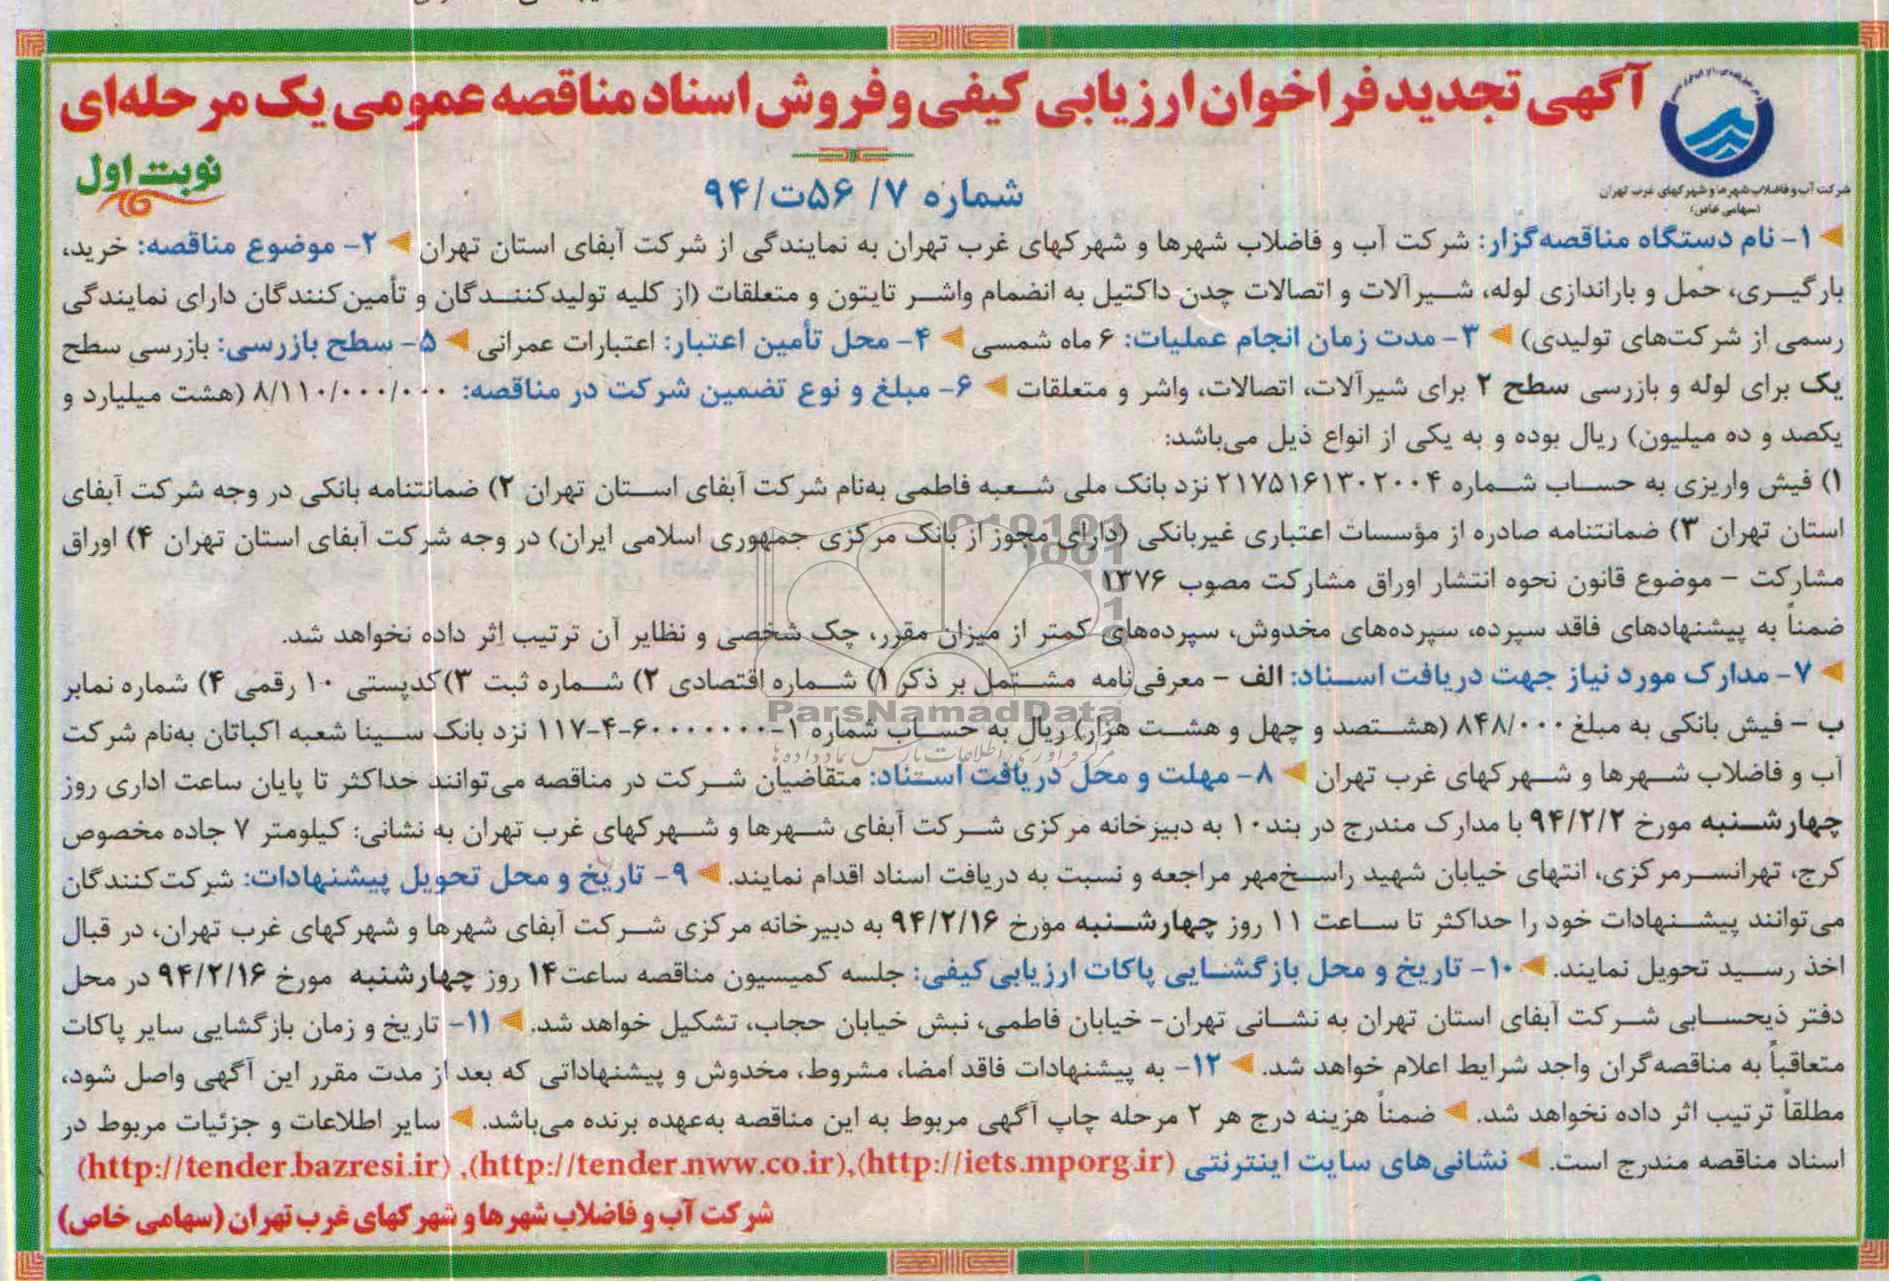 آگهی تجدید فراخوان ارزیابی کیفی و فروش اسناد مناقصه عمومی یک مرحله‌ای
شرکت آب و فاضلاب شهرها و شهرکهای غرب تهران
(سهامی خاص)
نوبت اول
شماره ۷/ ۵۶ت/۹۴
۱- نام دستگاه مناقصه‌گزار: شرکت آب و فاضلاب شهرها و شهرکهای غرب تهران به نمایندگی از شرکت آبفای استان تهران ۲- موضوع مناقصه: خرید،
بارگیری، حمل و باراندازی لوله، شیرآلات و اتصالات چدن داکتیل به انضمام واشر تایتون و متعلقات (از کلیه تولیدکنندگان و تأمین‌کنندگان دارای نمایندگی
رسمی از شرکت‌های تولیدی) ۳- مدت زمان انجام عملیات: ۶ ماه شمسی ۴- محل تأمین اعتبار: اعتبارات عمرانی ۵- سطح بازرسی: بازرسی سطح
یک برای لوله و بازرسی سطح ۲ برای شیرآلات، اتصالات، واشر و متعلقات ۶- مبلغ و نوع تضمین شرکت در مناقصه: ۸/۱۱۰/۰۰۰/۰۰۰ (هشت میلیارد و
یکصد و ده میلیون) ریال بوده و به یکی از انواع ذیل می‌باشد:
۱) فیش واریزی به حساب شماره ۲۱۷۵۱۶۱۳۰۲۰۰۴ نزد بانک ملی شعبه فاطمی به‌نام شرکت آبفای استان تهران ۲) ضمانتنامه بانکی در وجه شرکت آبفای
استان تهران ۳) ضمانتنامه صادره از مؤسسات اعتباری غیربانکی (دارای مجوز از بانک مرکزی جمهوری اسلامی ایران) در وجه شرکت آبفای استان تهران ۴) اوراق
مشارکت – موضوع قانون نحوه انتشار اوراق مشارکت مصوب ۱۳۷۶
ضمناً به پیشنهادهای فاقد سپرده، سپرده‌های مخدوش، سپرده‌های کمتر از میزان مقرر، چک شخصی و نظایر آن ترتیب اثر داده نخواهد شد.
۷- مدارک مورد نیاز جهت دریافت اسناد: الف – معرفی‌نامه مشتمل بر ذکر ۱) شماره اقتصادی ۲) شماره ثبت ۳)کدپستی ۱۰ رقمی ۴) شماره نمابر
ب – فیش بانکی به مبلغ ۸۴۸/۰۰۰ (هشتصد و چهل و هشت هزار) ریال به حساب شماره ۱-۶۰۰۰۰۰۰۰-۴-۱۱۷ نزد بانک سینا شعبه اکباتان به‌نام شرکت
آب و فاضلاب شهرها و شهرکهای غرب تهران ۸- مهلت و محل دریافت اسناد: متقاضیان شرکت در مناقصه می‌توانند حداکثر تا پایان ساعت اداری روز
چهارشنبه مورخ ۹۴/۲/۲ با مدارک مندرج در بند۱۰ به دبیرخانه مرکزی شرکت آبفای شهرها و شهرکهای غرب تهران به نشانی: کیلومتر ۷ جاده مخصوص
کرج، تهرانسرمرکزی، انتهای خیابان شهید راسخ‌مهر مراجعه و نسبت به دریافت اسناد اقدام نمایند. ۹- تاریخ و محل تحویل پیشنهادات: شرکت‌کنندگان
می‌توانند پیشنهادات خود را حداکثر تا ساعت ۱۱ روز چهارشنبه مورخ ۹۴/۲/۱۶ به دبیرخانه مرکزی شرکت آبفای شهرها و شهرکهای غرب تهران، در قبال
اخذ رسید تحویل نمایند. ۱۰- تاریخ و محل بازگشایی پاکات ارزیابی‌کیفی: جلسه کمیسیون مناقصه ساعت۱۴ روز چهارشنبه مورخ ۹۴/۲/۱۶ در محل
دفتر ذیحسابی شرکت آبفای استان تهران به نشانی تهران- خیابان فاطمی، نبش خیابان حجاب، تشکیل خواهد شد. ۱۱- تاریخ و زمان بازگشایی سایر پاکات
متعاقباً به مناقصه‌گران واجد شرایط اعلام خواهد شد. ۱۲- به پیشنهادات فاقد امضا، مشروط، مخدوش و پیشنهاداتی که بعد از مدت مقرر این آگهی واصل شود،
مطلقاً ترتیب اثر داده نخواهد شد. ضمناً هزینه درج هر ۲ مرحله چاپ آگهی مربوط به این مناقصه به‌عهده برنده می‌باشد. سایر اطلاعات و جزئیات مربوط در
اسناد مناقصه مندرج است. نشانی‌های سایت اینترنتی (http://iets.mporg.ir)،(http://tender.nww.co.ir)، (http://tender.bazresi.ir)
شرکت آب و فاضلاب شهرها و شهرکهای غرب تهران (سهامی خاص)
ParsNamadData